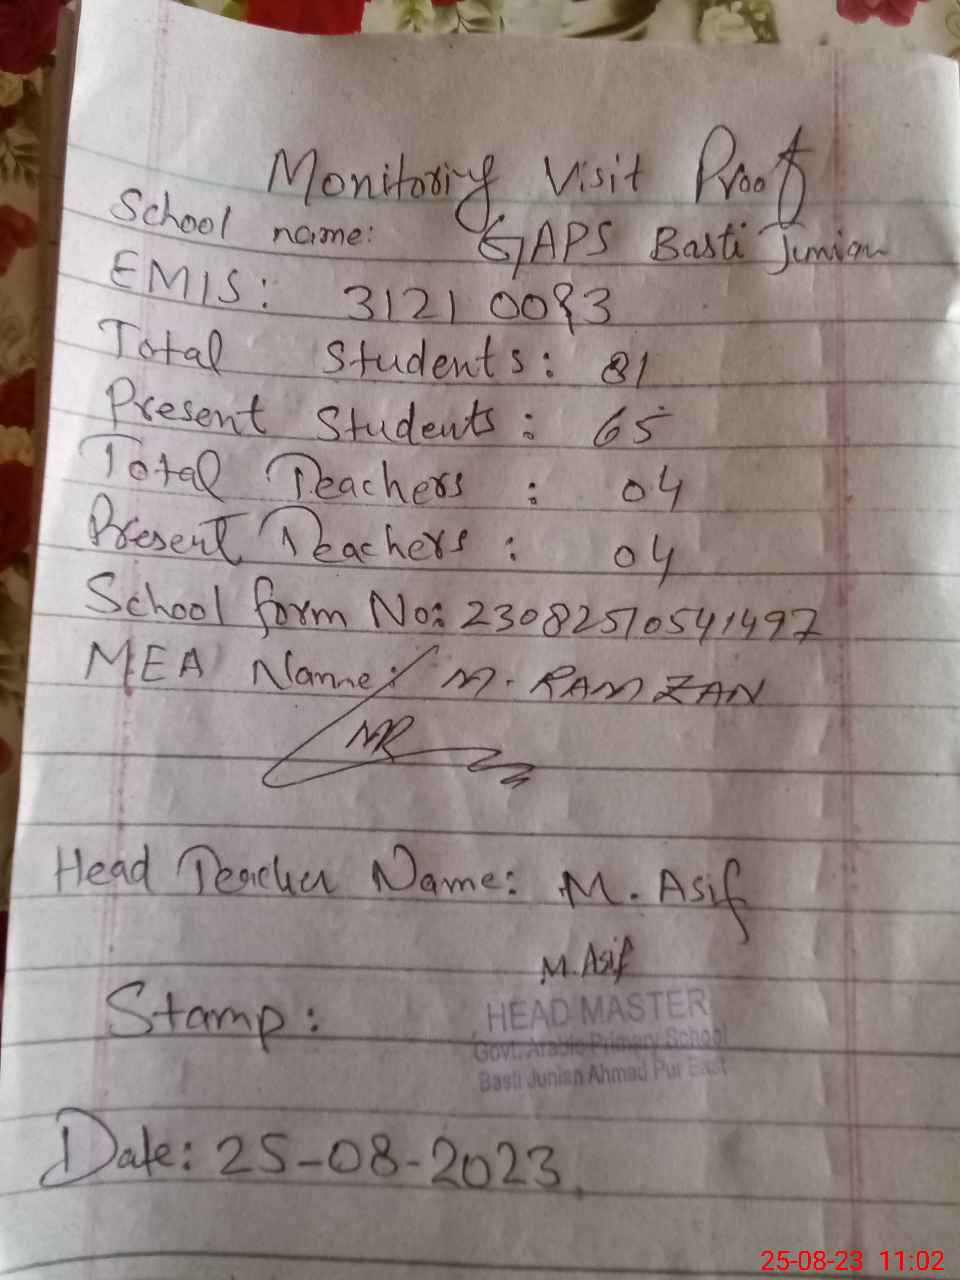 Monitoring Visit Proof
School name: GAPS Basti Junian
EMIS: 31210093
Total Students: 81
Present Students: 65
Total Teachers: 04
Present Teachers: 04
School form No: 23082510541497
MEA Name: M. RAMZAN
MR
Head Teacher Name: M. Asif
M. Asif
Stamp:
HEAD MASTER
Govt. Arabic Primary School
Basti Junian Ahmad Pur East
Date: 25-08-2023
25-08-23 11:02